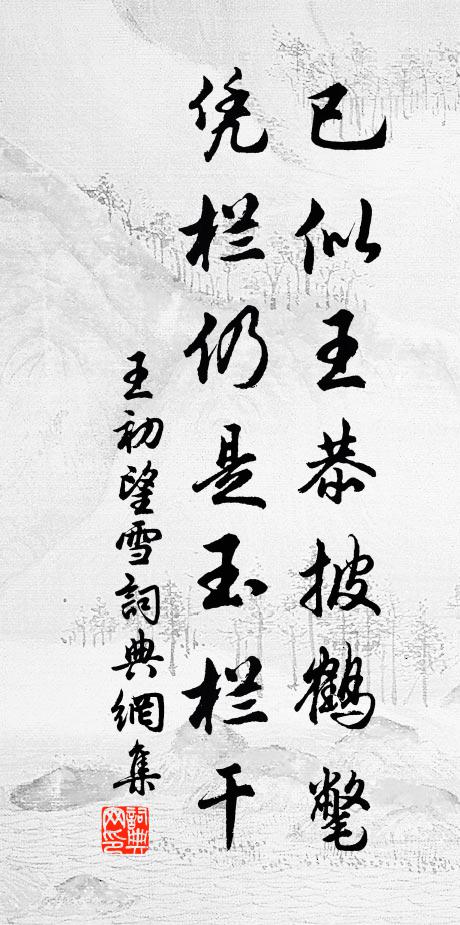 已似王恭披鹤氅
凭栏仍是玉栏干
王初望雪詞典網集
詞典網印